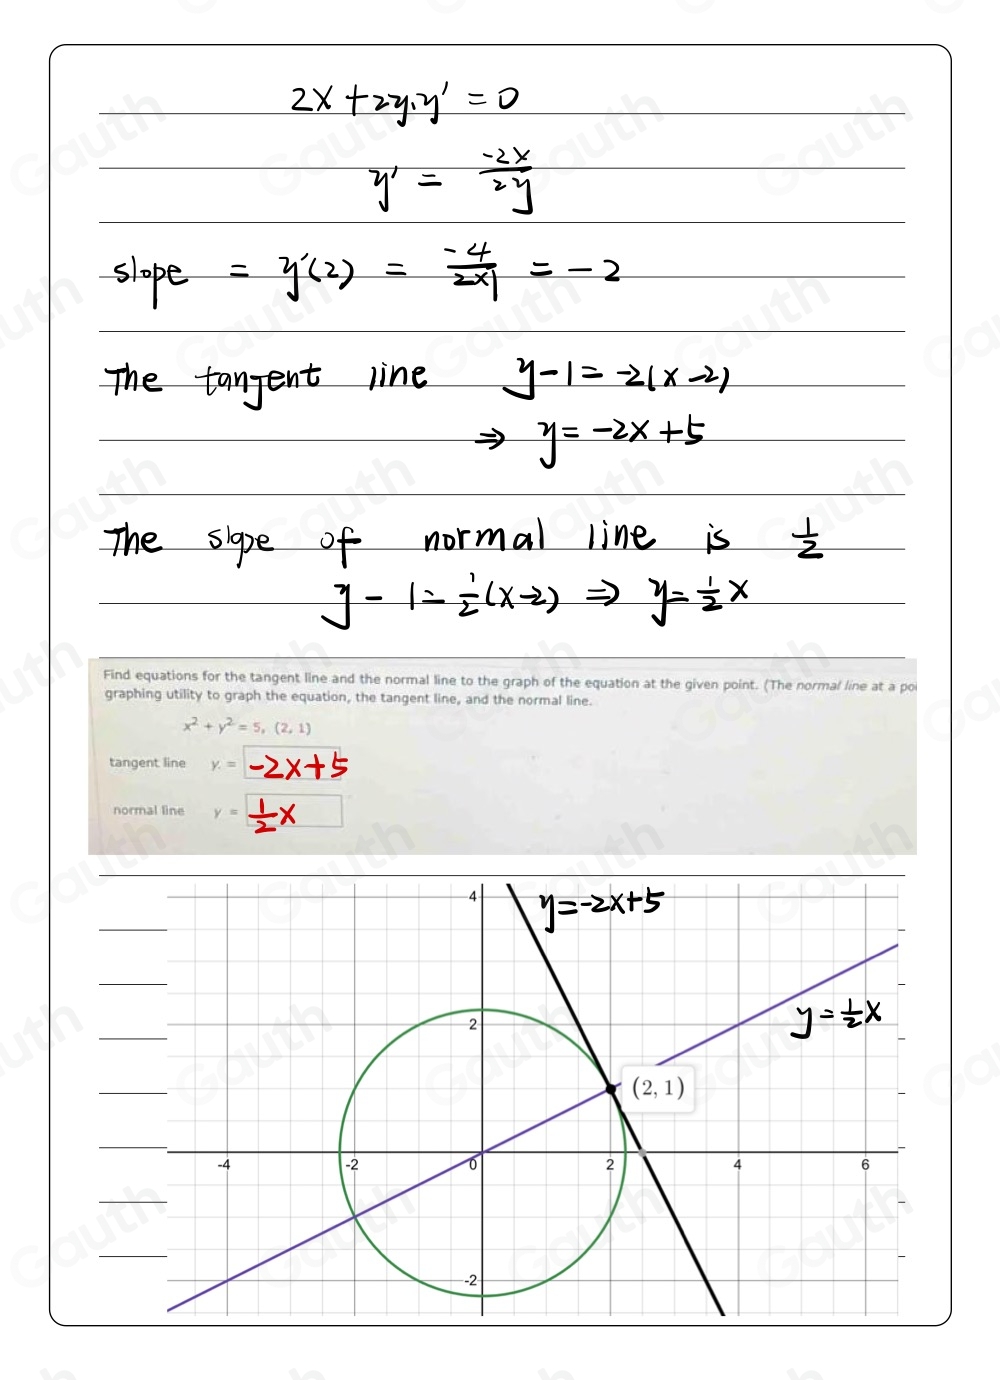 2x + 2y·y' = 0
y' = -2x/2y
slope = y'(2) = -4/2×1 = -2
The tangent line y-1 = -2(x-2)
⇒ y = -2x+5
The slope of normal line is 1/2
y - 1 = 1/2(x-2) ⇒ y = 1/2x
Find equations for the tangent line and the normal line to the graph of the equation at the given point. (The normal line at a poi
graphing utility to graph the equation, the tangent line, and the normal line.
x² + y² = 5, (2, 1)
tangent line y = -2x+5
normal line y = 1/2x
y=-2x+5
y=1/2x
(2, 1)
4
2
-4 -2 0 2 4 6
-2
Gauth